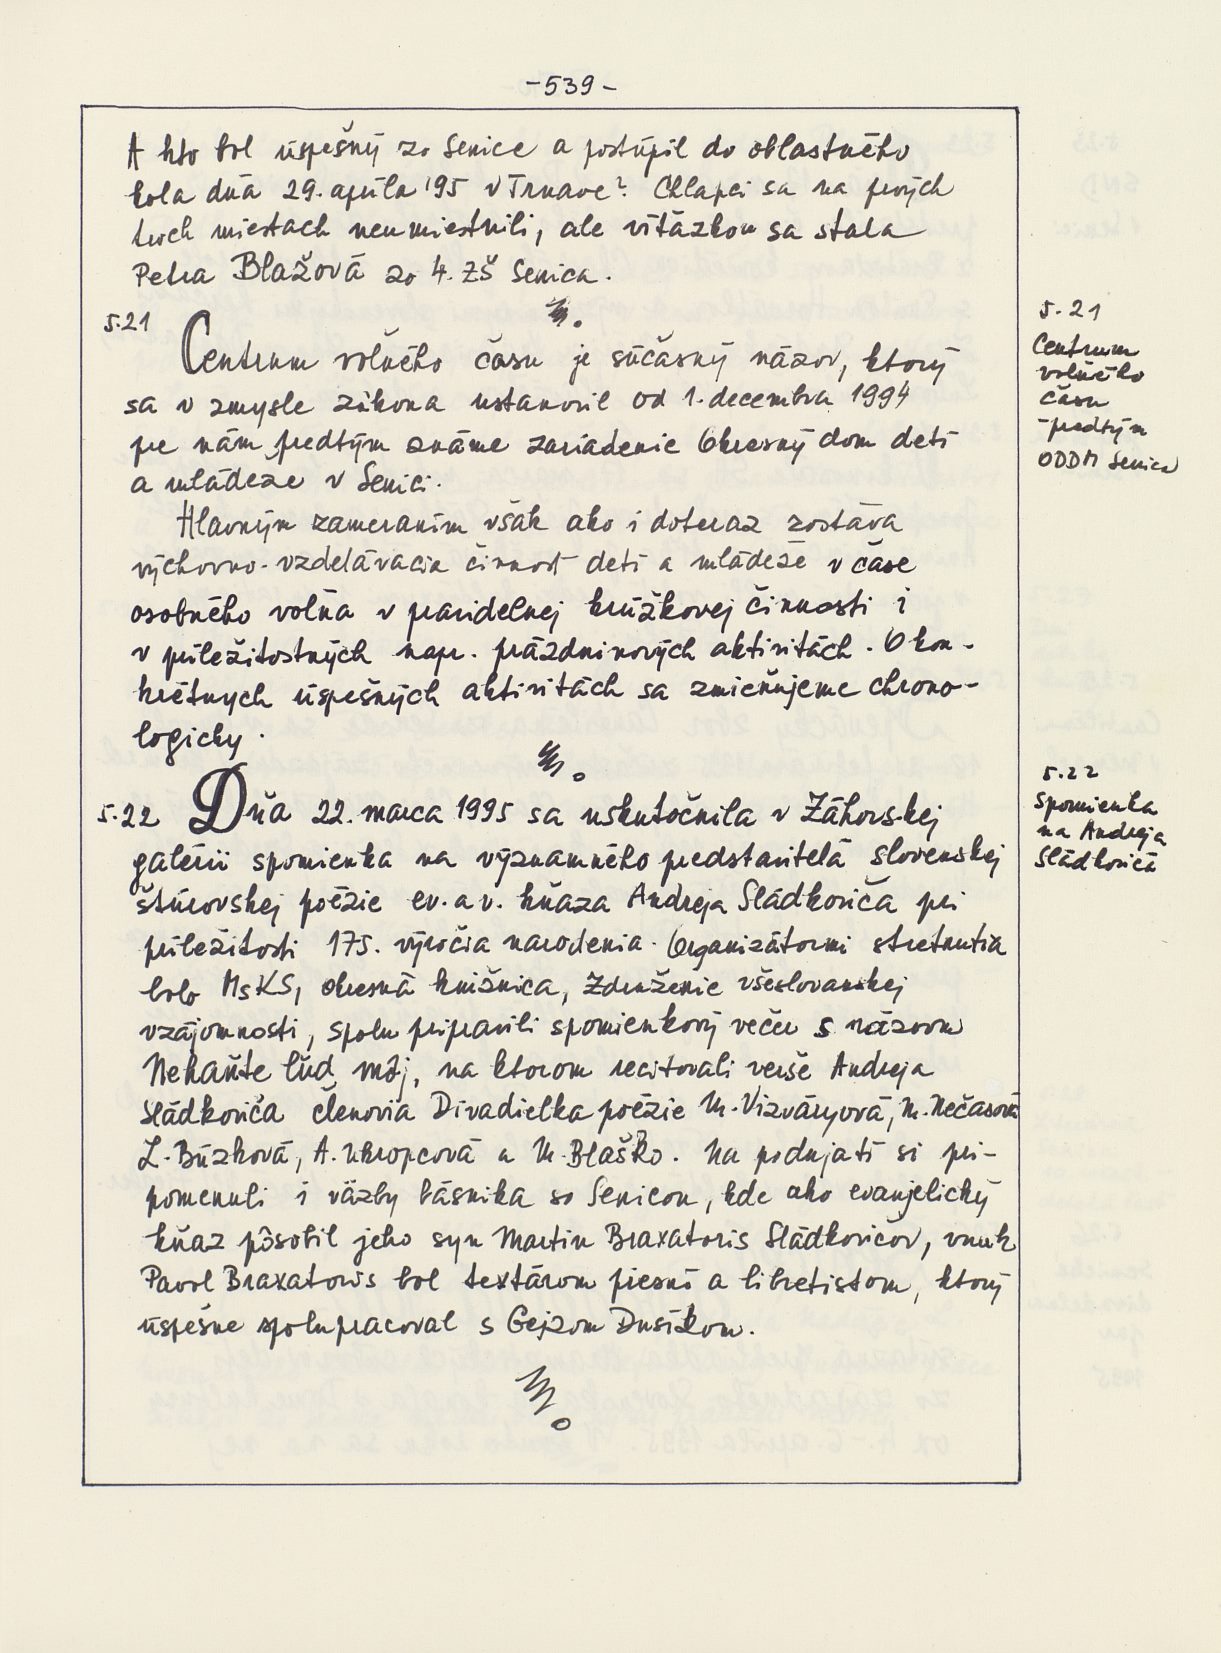 -539-
A kto bol úspešný zo Senice a postúpil do oblastného
kola dňa 29. apríla '95 v Trnave? Chlapci sa na prvých
troch miestach neumiestnili, ale víťazkou sa stala
Petra Blažová zo 4. ZŠ Senica.
5.21
Centrum voľného času je súčasný názov, ktorý
sa v zmysle zákona ustanovil od 1. decembra 1994
pre nám predtým známe zariadenie Okresný dom detí
a mládeže v Senici.
Hlavným zameraním však ako i doteraz zostáva
výchovno-vzdelávacia činnosť detí a mládeže v čase
osobného voľna v pravidelnej krúžkovej činnosti i
v príležitostných napr. prázdninových aktivitách. O kon-
krétnych úspešných aktivitách sa zmieňujeme chrono-
logicky.
5.21
Centrum
voľného
času
-predtým
ODDM Senica
5.22 Dňa 22. marca 1995 sa uskutočnila v Záhorskej
galérii spomienka na významného predstaviteľa slovenskej
štúrovskej poézie ev. a v. kňaza Andreja Sládkoviča pri
príležitosti 175. výročia narodenia. Organizátormi stretnutia
bolo MsKS, okresná knižnica, Združenie všeslovanskej
vzájomnosti, spolu pripravili spomienkový večer s názvom
Nehaňte ľud môj, na ktorom recitovali verše Andreja
Sládkoviča členovia Divadielka poézie M. Vizváryová, M. Nečasová
Ľ. Búzková, A. Ukropcová a M. Blaško. Na podujatí si pri-
pomenuli i väzby básnika so Senicou, kde ako evanjelický
kňaz pôsobil jeho syn Martin Braxatoris Sládkovičov, vnuk
Pavol Braxatoris bol textárom piesní a libretistom, ktorý
úspešne spolupracoval s Gejzom Dusíkom.
5.22
Spomienka
na Andreja
Sládkoviča